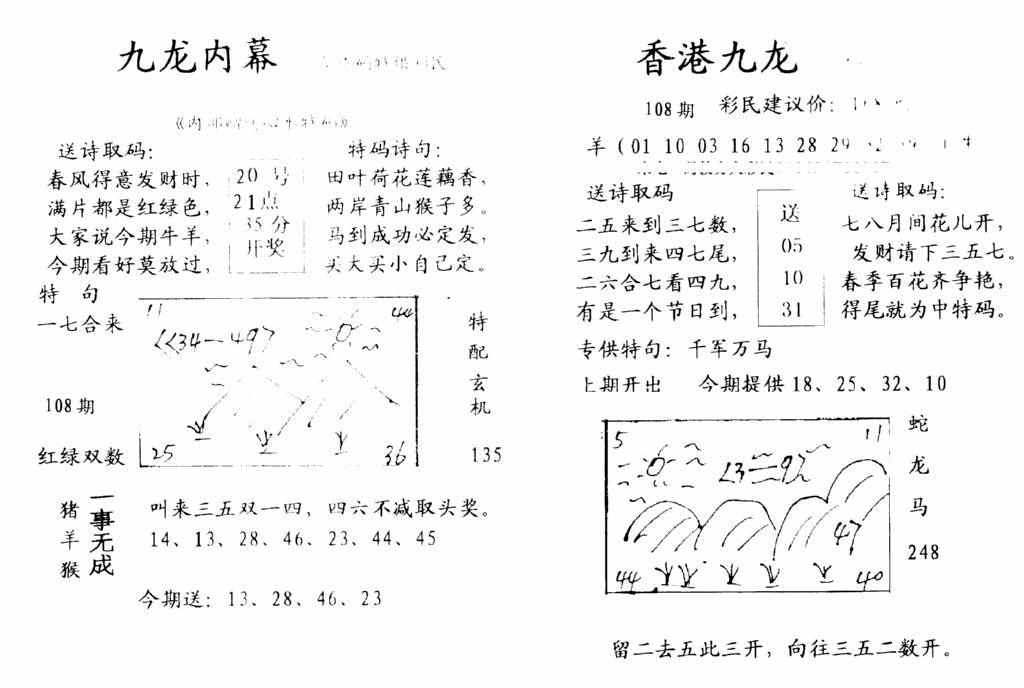 九龙内幕
送诗取码：
春风得意发财时，
满片都是红绿色，
大家说今期牛羊，
今期看好莫放过，
20 号
21点
35分
开奖
特码诗句：
田叶荷花莲藕香，
两岸青山猴子多。
马到成功必定发，
买大买小自己定。
特 句
一七合来
108期
红绿双数
11
44
25
36
特
配
玄
机
135
猪
羊
猴
一事无成
叫来三五双一四，四六不减取头奖。
14、13、28、46、23、44、45
今期送：13、28、46、23
香港九龙
108期 彩民建议价：
羊（01 10 03 16 13 28 29
送诗取码
二五来到三七数，
三九到来四七尾，
二六合七看四九，
有是一个节日到，
送
05
10
31
送诗取码：
七八月间花儿开，
发财请下三五七。
春季百花齐争艳，
得尾就为中特码。
专供特句：千军万马
上期开出 今期提供18、25、32、10
5
11
47
44
40
蛇
龙
马
248
留二去五此三开，向往三五二数开。